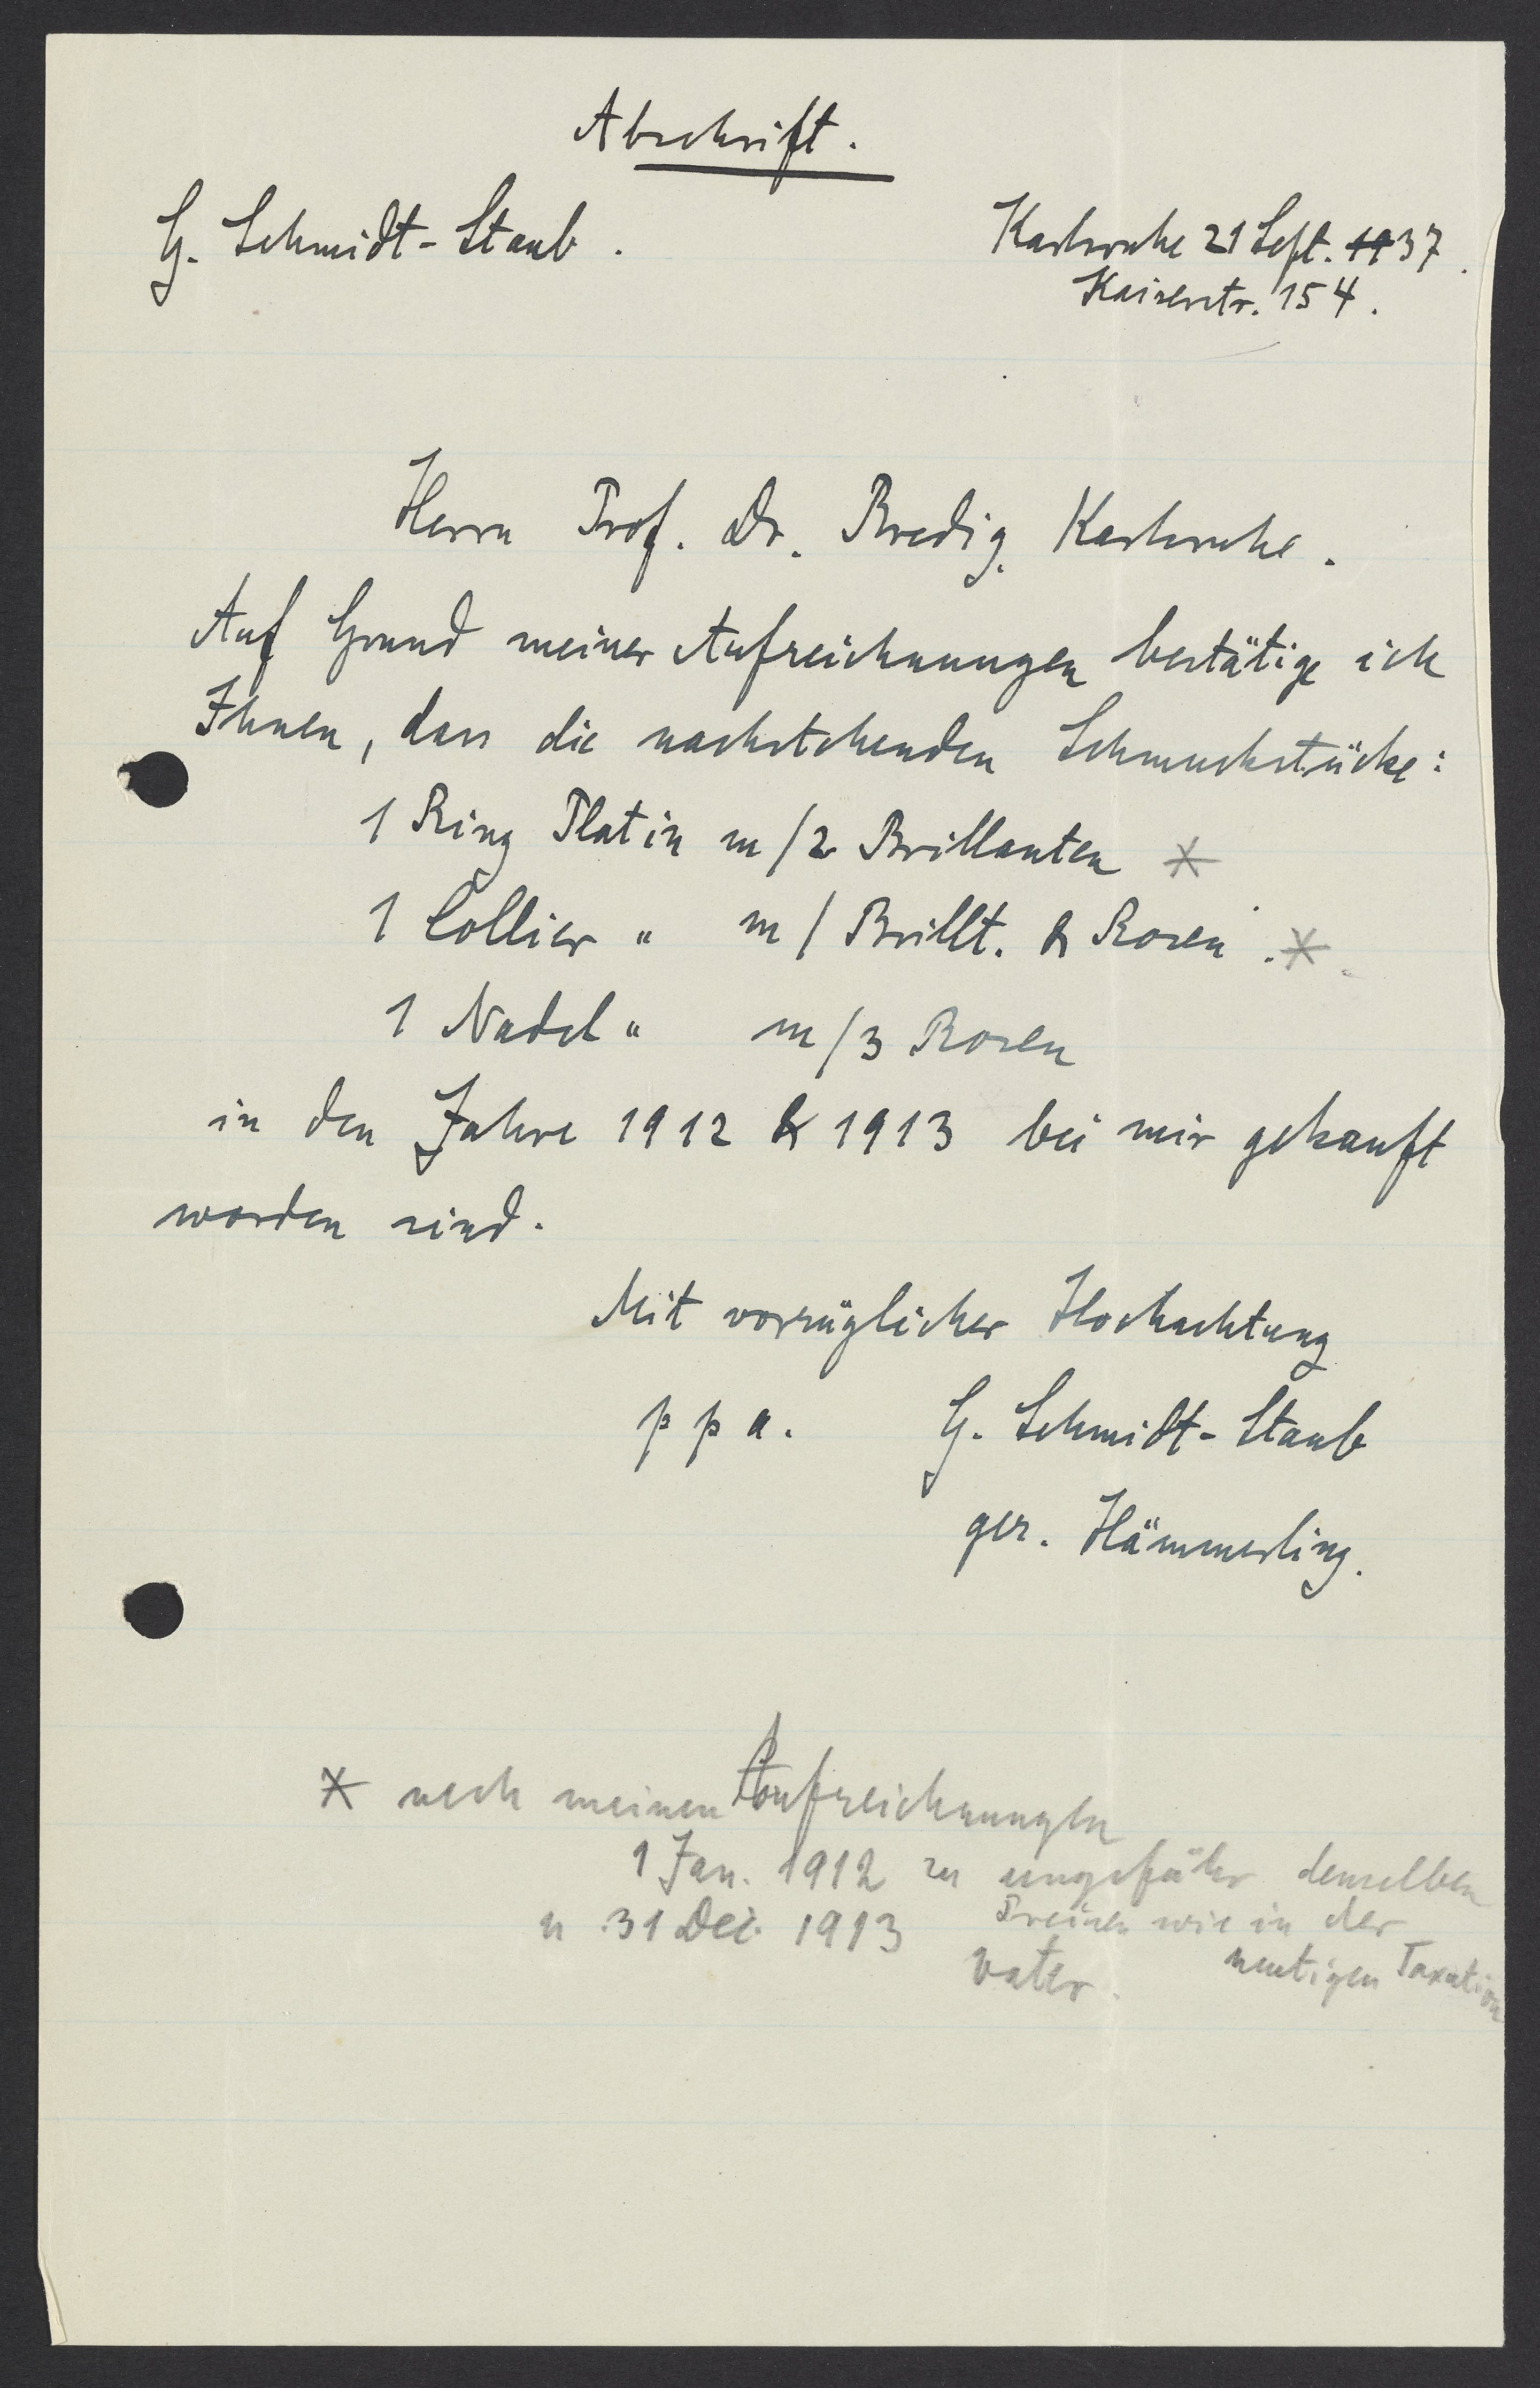 Abschrift.
G. Schmidt-Staub.
Karlsruhe 21 Sept. 1937.
Kaiserstr. 154.
Herrn Prof. Dr. Bredig, Karlsruhe.
Auf Grund meiner Aufzeichnungen bestätige ich
Ihnen, dass die nachstehenden Schmuckstücke:
1 Ring Platin m/2 Brillanten *
1 Collier " m/Brillt. & Rosen. *
1 Nadel " m/3 Rosen
in den Jahre 1912 & 1913 bei mir gekauft
worden sind.
Mit vorzüglicher Hochachtung
ppa. G. Schmidt-Staub
gez. Hämmerling.
* nach meinen Aufzeichnungen
1 Jan. 1912 zu ungefähr denselben
u 31 Dez. 1913 Preisen wie in der
heutigen Taxation
Vater.